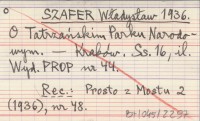 SZAFER Władysław 1936.
O Tatrzańskim Parku Narodo-
wym. — Kraków. Ss. 16, il.
Wyd. PROP nr 44.
Rec.: Prosto z Mostu 2
(1936), nr 48.